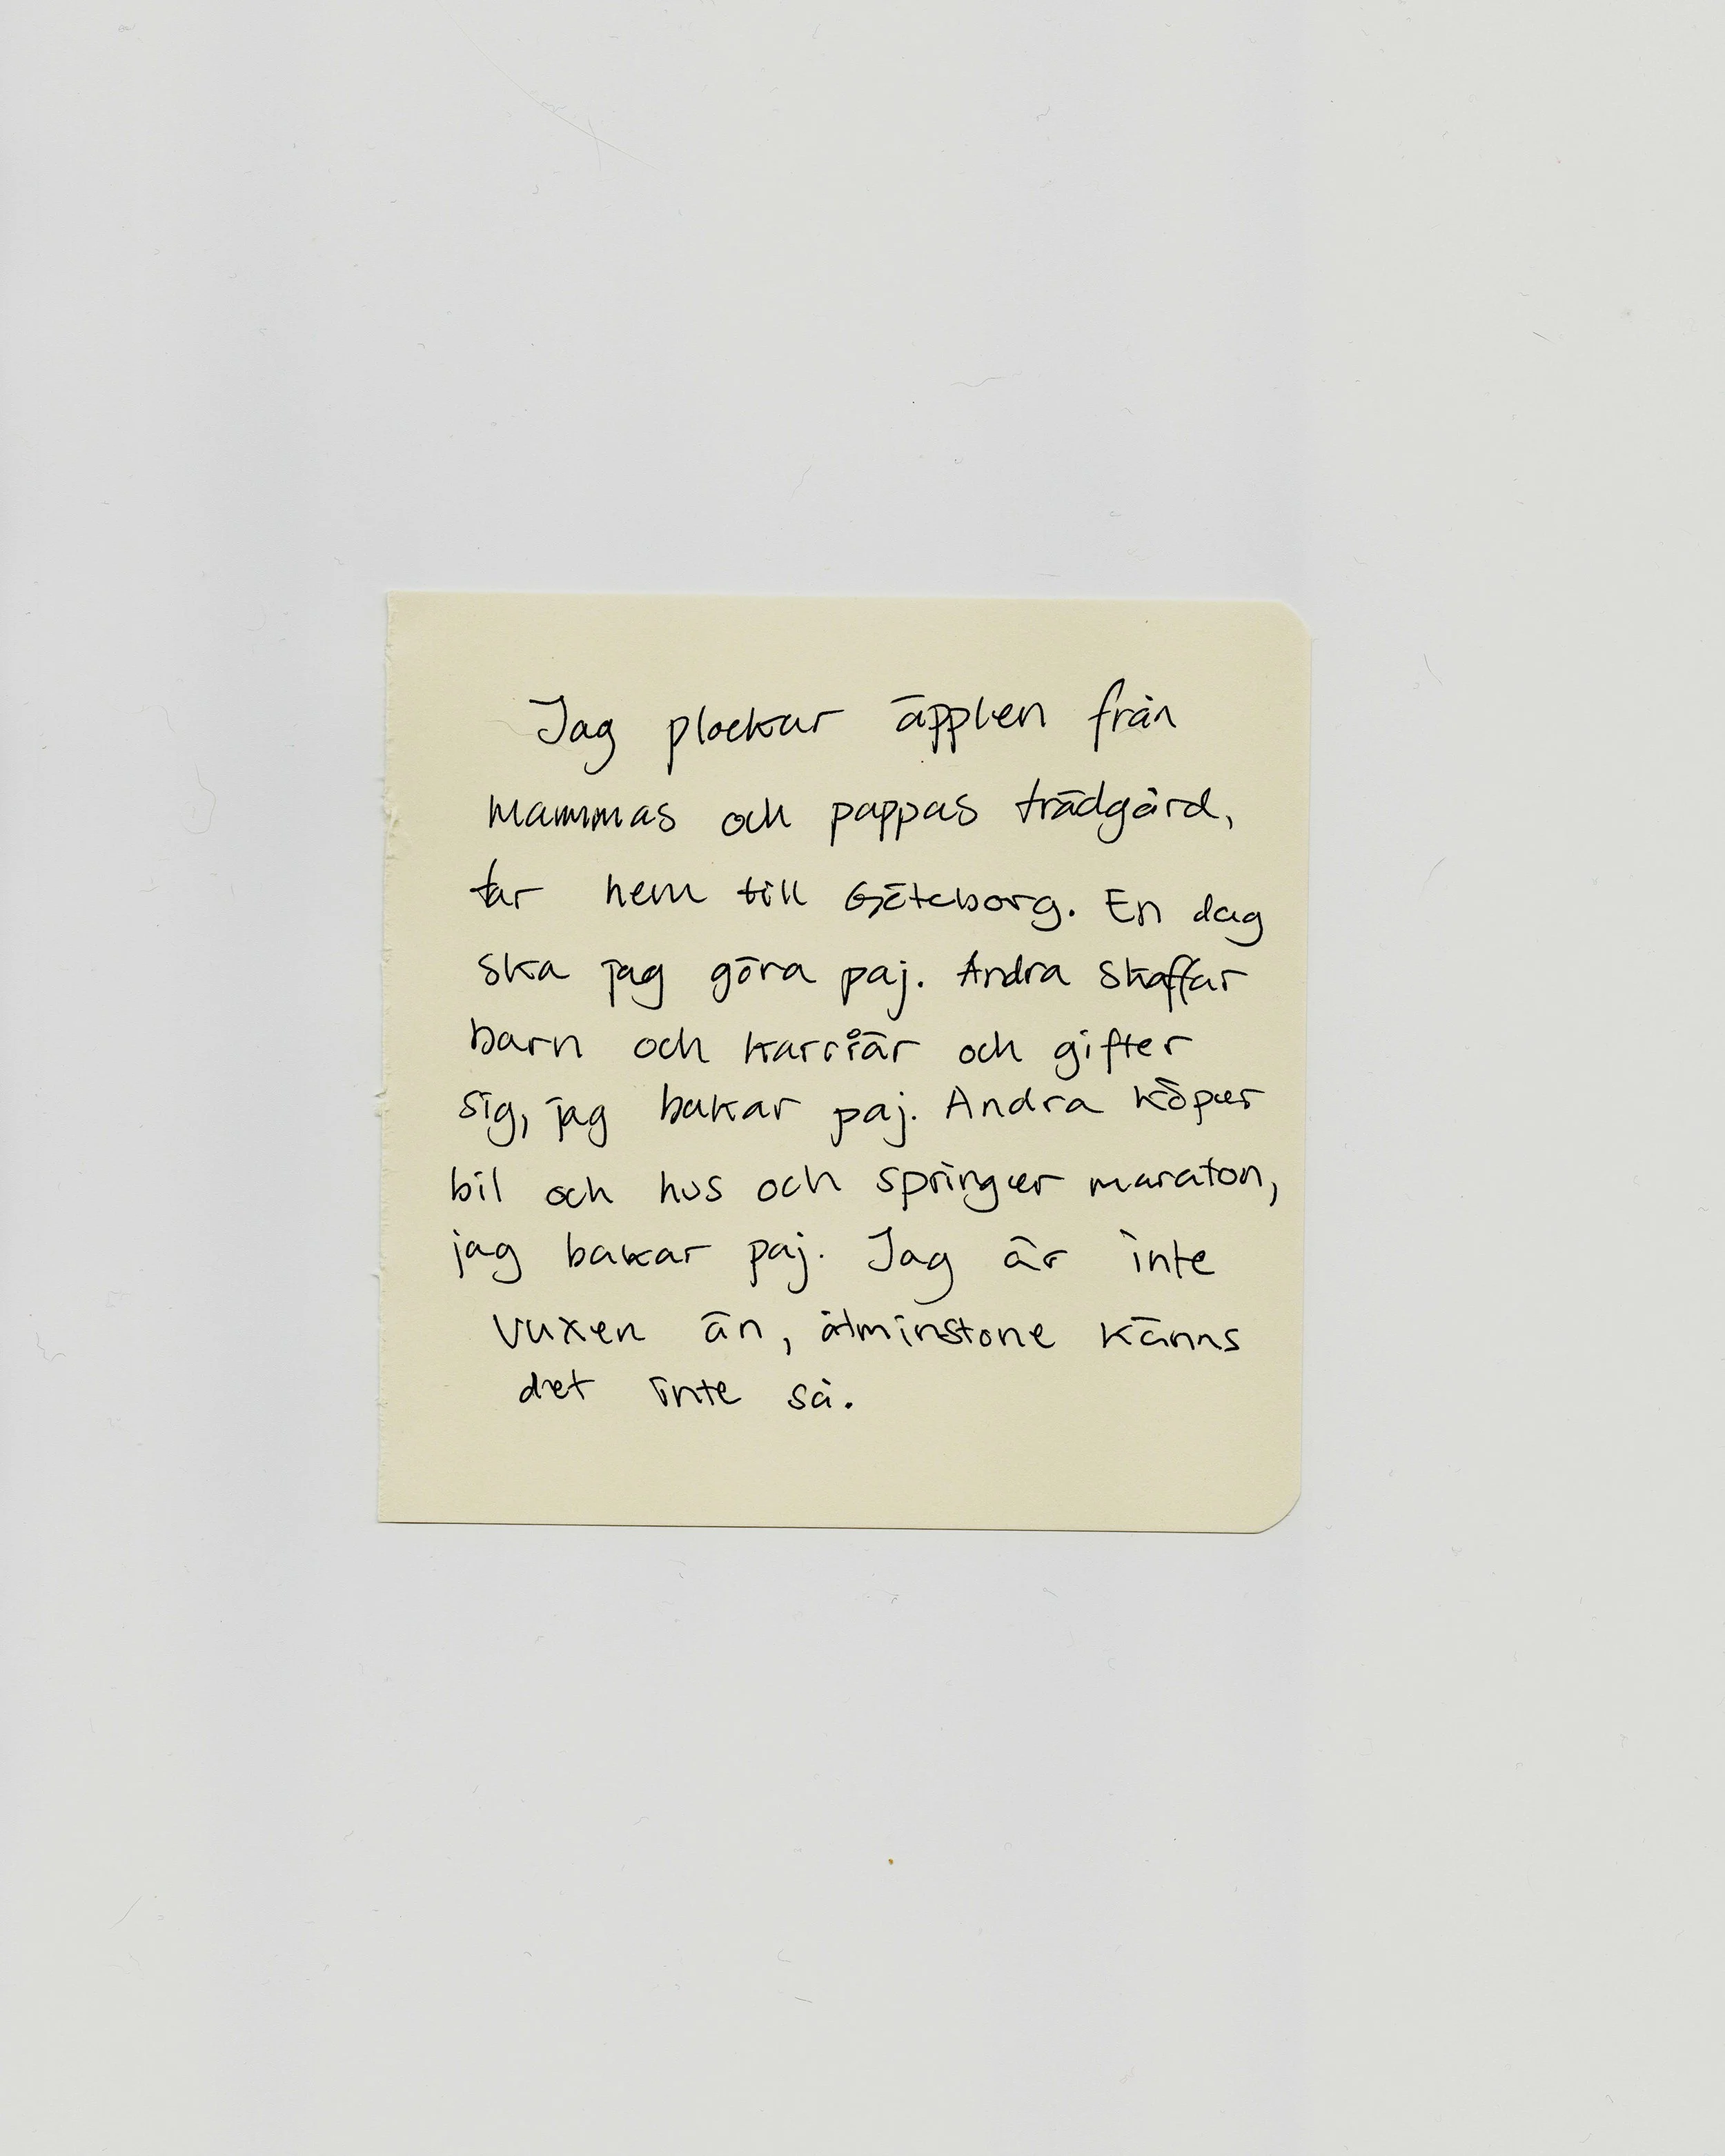 Jag plockar äpplen från
mammas och pappas trädgård,
tar hem till Göteborg. En dag
ska jag göra paj. Andra skaffar
barn och karriär och gifter
sig, jag bakar paj. Andra köper
bil och hus och springer maraton,
jag bakar paj. Jag är inte
vuxen än, åtminstone känns
det inte så.